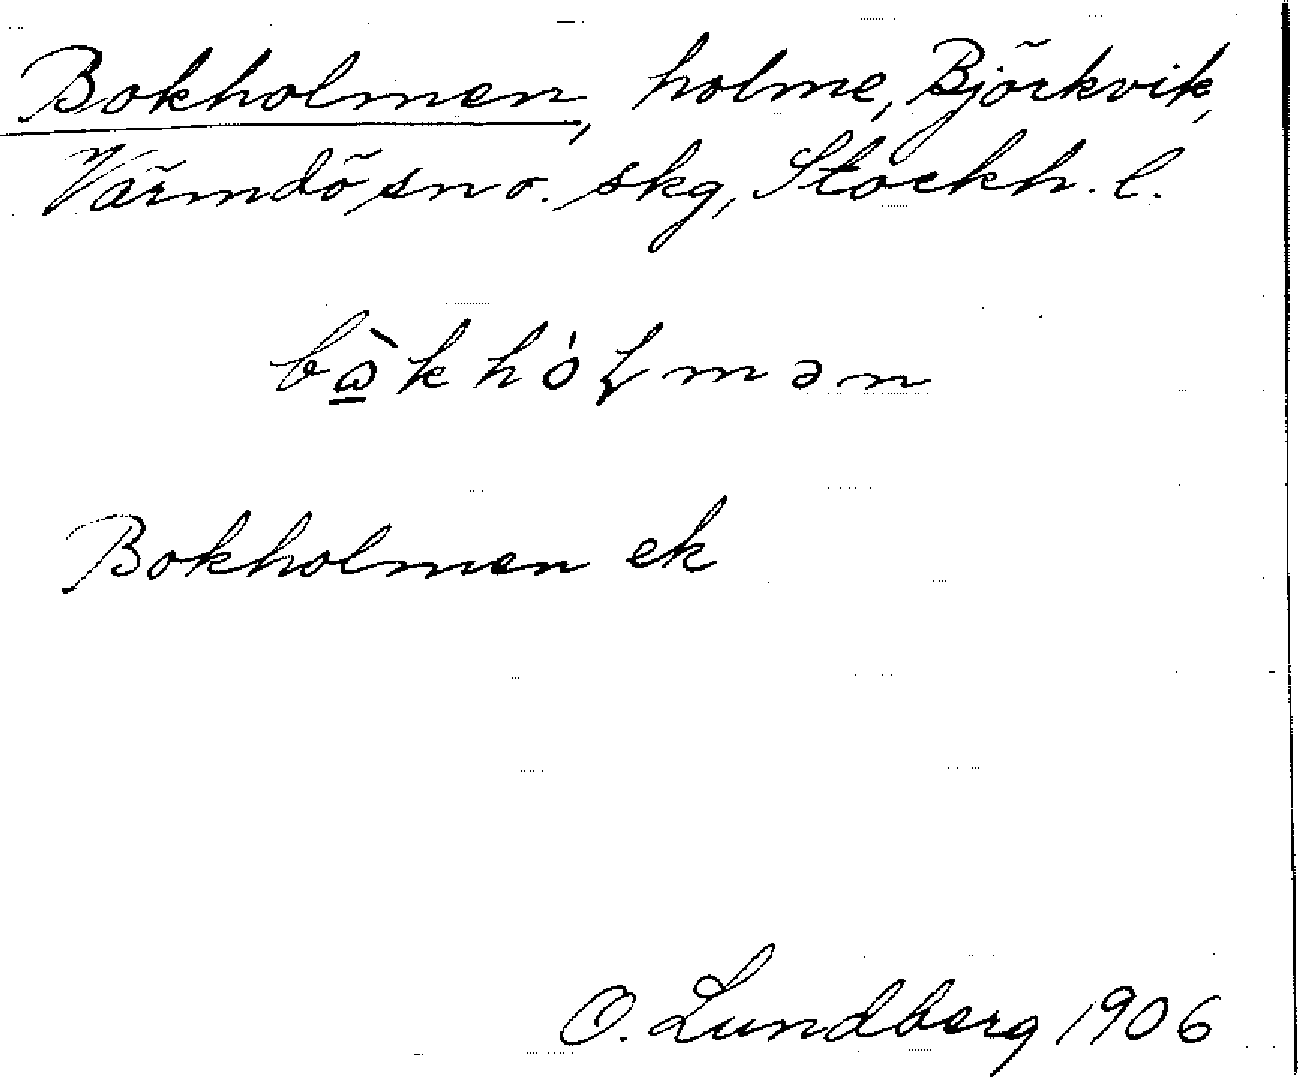 Bokholmen, holme, Björkvik,
Värmdö sn o. skg, Stockh. l.
bὼ̲khóɫmən
Bokholmen ek
O. Lundberg 1906